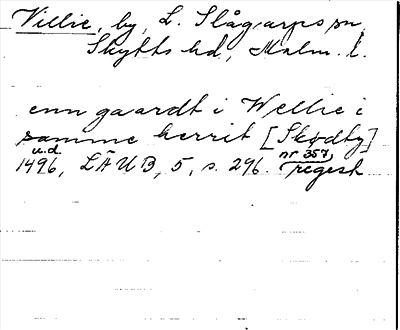 Villie, by, L. Slågarps sn,
Skytts hd, Malm. l.
enn gaardt i Wellie i
samme herrit [Skødby]
u.d. nr 357,
1496, LÄUB, 5, s. 296. regest